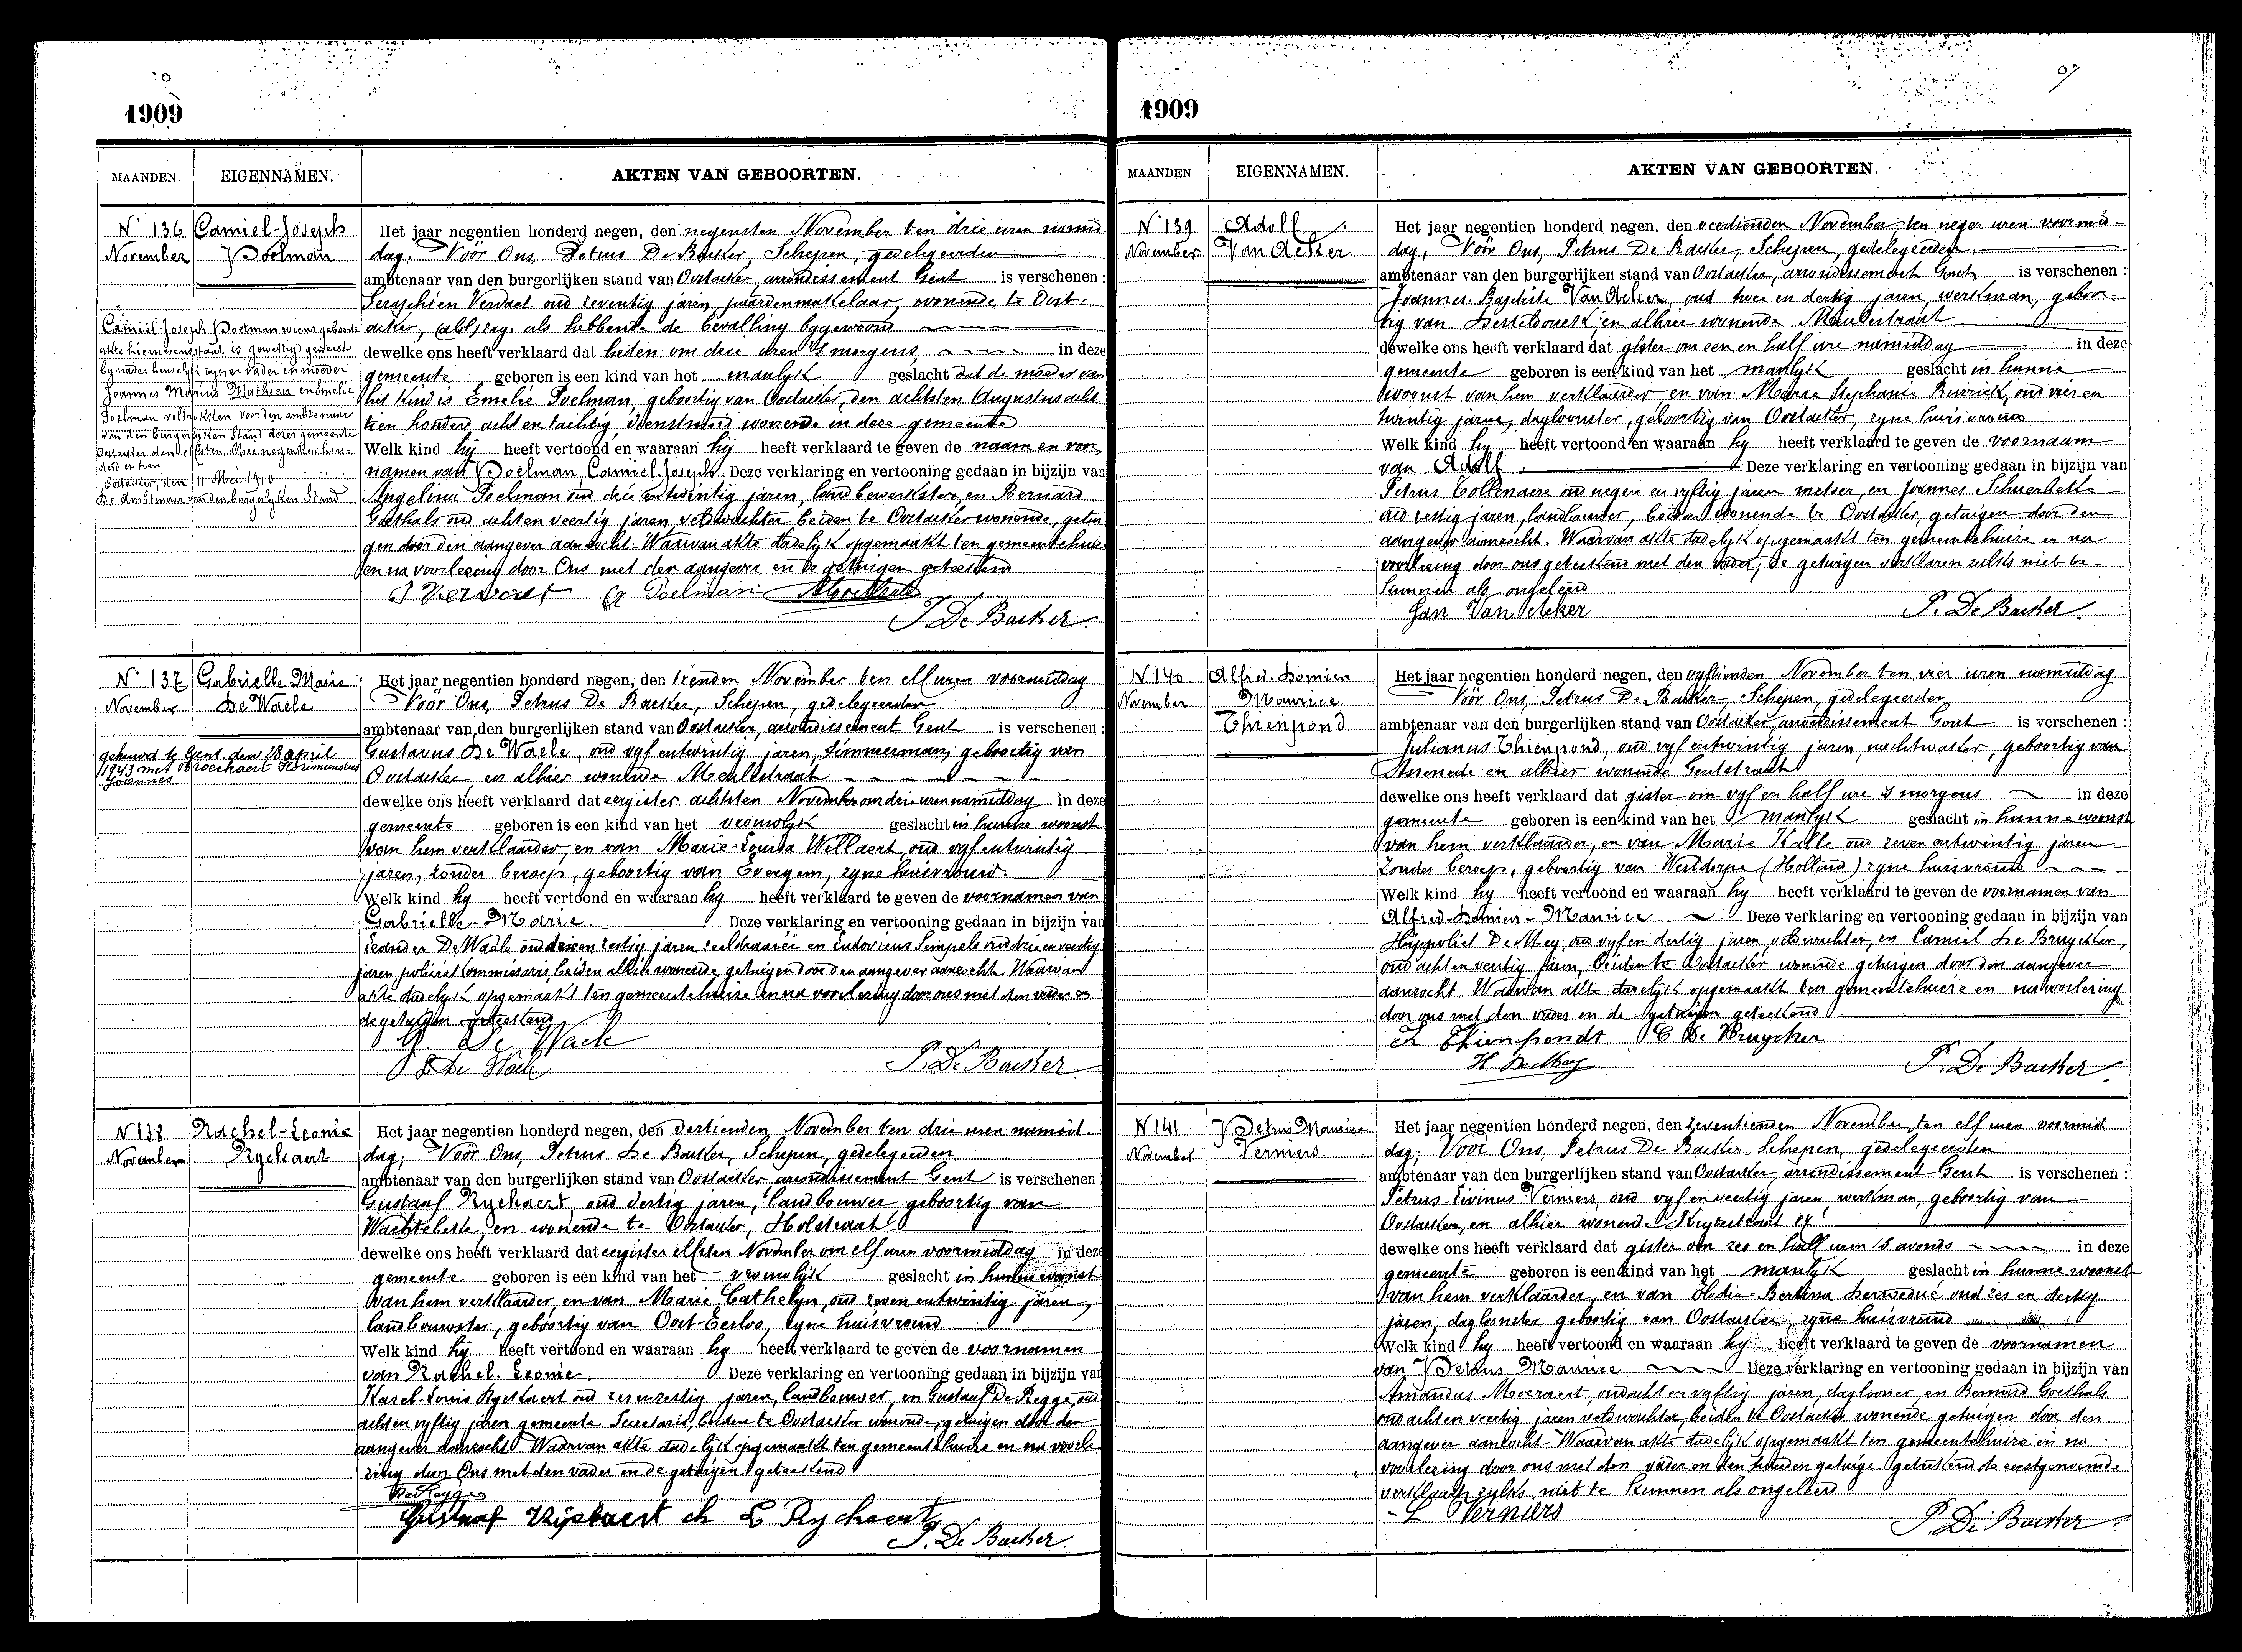 1909
MAANDEN. EIGENNAMEN. AKTEN VAN GEBOORTEN.
N° 136 Camiel-Joseph
November Poelman
Camiel Joseph Poelman wiens geboorte
akte hiernevens staat is gewettigd geweest
by nader huwelyk zyner vader en moeder
Joannes Marius Mathieu en Emelie
Poelman voltrokken voor den ambtenaar
van den burgerlyken stand dezer gemeente
Oostacker den elfsten Mei negentien hon-
derd en tien
Oostacker, den 11 Mei 1910
De Ambtenaar van den burgerlyken Stand
Het jaar negentien honderd negen, den negensten November ten drie uren namid
dag, Vóór Ons, Petrus De Backer, Schepen, gedelegeerden
ambtenaar van den burgerlijken stand van Oostacker, arrondissement Gent is verschenen :
Seraphien Vervaet oud zeventig jaren paardenmakelaar, wonende te Oost-
acker, als hebbende de bevalling bygewoond
dewelke ons heeft verklaard dat heden om drie uren 's morgens, in deze
gemeente geboren is een kind van het manlyk geslacht dat de moeder van
het kind is Emelie Poelman, geboortig van Oostacker, den achtsten Augustus acht
tien honderd acht en tachtig dienstmeid wonende in deze gemeente
Welk kind hij heeft vertoond en waaraan hij heeft verklaard te geven de naam en voor
namen van Poelman, Camiel-Joseph. Deze verklaring en vertooning gedaan in bijzijn van
Angelina Poelman oud drie en twintig jaren, landbewerkster, en Bernard
Goethals oud acht en veertig jaren, veldwachter beiden te Oostacker wonende, getui
gen door den aangever aanzocht. Waarvan akte dadelyk opgemaakt ten gemeentehuize
en na voorlezing door Ons met den aangever en de getuigen geteekend
S Vervaet A Poelman B Goethals
P. De Backer
N° 137 Gabrielle Marie
November De Waele
gehuwd te Gent den 28 april
1943 met Broeckaert Florimundus
Joannes
Het jaar negentien honderd negen, den tienden November ten elf uren voormiddag
Vóór Ons, Petrus De Backer, Schepen, gedelegeerden
ambtenaar van den burgerlijken stand van Oostacker, arrondissement Gent is verschenen :
Gustavus De Waele, oud vyf en twintig jaren, timmerman, geboortig van
Oostacker en alhier wonende Meulestraat
dewelke ons heeft verklaard dat eergister achtsten November om drie uren namiddag in deze
gemeente geboren is een kind van het vrouwlyk geslacht in hunne woonst
van hem verklaarder, en van Marie-Louisa Willaert oud vyf en twintig
jaren, zonder beroep, geboortig van Evergem, zyne huisvrouw.
Welk kind hy heeft vertoond en waaraan hy heeft verklaard te geven de voornamen van
Gabrielle-Marie. Deze verklaring en vertooning gedaan in bijzijn van
Leander De Waele oud drie en zestig jaren en Ludovicus Sempels oud drie en veertig
jaren, policie Commissaris, beiden alhier wonende getuigen door den aangever aanzocht. Waarvan
akte dadelyk opgemaakt ten gemeentehuize en na voorlezing door ons met den vader en
de getuigen geteekend
G. De Waele
L De Waele P. De Backer
N° 138 Rachel-Leonie
November Ryckaert
Het jaar negentien honderd negen, den dertienden November ten drie uren namid-
dag, Vóór Ons, Petrus De Backer, Schepen, gedelegeerden
ambtenaar van den burgerlijken stand van Oostacker, arrondissement Gent is verschenen
Gustaaf Ryckaert, oud dertig jaren, landbouwer geboortig van
Wachtebeke, en wonende te Oostacker, Holstraat
dewelke ons heeft verklaard dat eergister elfsten November om elf uren voormiddag in deze
gemeente geboren is een kind van het vrouwlyk geslacht in hunne woonst
van hem verklaarder, en van Marie Cathelyn, oud zeven en twintig jaren,
landbouwster, geboortig van Oost-Eecloo, zyne huisvrouw
Welk kind hij heeft vertoond en waaraan hy heeft verklaard te geven de voornamen
van Rachel-Leonie. Deze verklaring en vertooning gedaan in bijzijn van
Karel-Louis Ryckaert oud jaren, landbouwer, en Gustaaf De Regge, oud
acht en vyftig jaren gemeente Secretaris, beiden te Oostacker wonende, getuigen door den
aangever aanzocht. Waarvan akte dadelyk opgemaakt ten gemeentehuize en na voorle
zing door Ons met den vader en de getuigen geteekend
De Regge
Gustaaf Rijckaert ch L Rychaert
P. De Backer
1909
MAANDEN. EIGENNAMEN. AKTEN VAN GEBOORTEN.
N° 139 Adolf
November Van Acker
Het jaar negentien honderd negen, den veertienden November ten negen uren voormid-
dag, Vóór Ons, Petrus De Backer, Schepen, gedelegeerden
ambtenaar van den burgerlijken stand van Oostacker, arrondissement Gent is verschenen :
Joannes-Baptiste Van Acker, oud twee en dertig jaren, werkman, geboor-
tig van Desteldonck, en alhier wonende Meulestraat
dewelke ons heeft verklaard dat gister om een en half ure namiddag in deze
gemeente geboren is een kind van het manlyk geslacht in hunne
woonst van hem verklaarder en van Marie Stephanie oud vier en
twintig jaren, dagloonster, geboortig van Oostacker, zyne huisvrouw
Welk kind hy heeft vertoond en waaraan hy heeft verklaard te geven de voornaam
van Adolf. Deze verklaring en vertooning gedaan in bijzijn van
Petrus Collenaere oud negen en vyftig jaren metser, en Joannes
oud zestig jaren, landbouwer, beiden wonende te Oostacker, getuigen door den
aangever aanzocht. Waarvan akte dadelyk opgemaakt ten gemeentehuize en na
voorlezing door ons geteekend met den vader; de getuigen verklaren zulks niet te
kunnen als ongeleerd
Jan Van Acker P. De Backer
N° 140 Alfred-Damien
November Maurice
Thienpond
Het jaar negentien honderd negen, den vyftienden November ten vier uren namiddag
Vóór Ons, Petrus De Backer, Schepen, gedelegeerden
ambtenaar van den burgerlijken stand van Oostacker, arrondissement Gent is verschenen :
Julianus Thienpond, oud vyf en twintig jaren, nachtwaker, geboortig van
Assenede en alhier wonende Gentstraat
dewelke ons heeft verklaard dat gister om vyf en half ure 's morgens in deze
gemeente geboren is een kind van het manlyk geslacht in hunne woonst
van hem verklaarder, en van Marie Kalle oud zeven en twintig jaren
zonder beroep, geboortig van Westdorpe (Holland) zyne huisvrouw
Welk kind hy heeft vertoond en waaraan hy heeft verklaard te geven de voornamen van
Alfred-Damien-Maurice Deze verklaring en vertooning gedaan in bijzijn van
Hippoliet De Mey, oud vyf en dertig jaren, veldwachter, en Camiel De Bruycker,
oud acht en veertig jaren, beiden te Oostacker wonende getuigen door den aangever
aanzocht Waarvan akte dadelyk opgemaakt ten gemeentehuize en na voorlezing
door ons met den vader en de getuigen geteekend
J. Thienpondt C De Bruycker
H. De Mey P. De Backer
N° 141 Petrus Maurice
November Verniers.
Het jaar negentien honderd negen, den zeventienden November, ten elf uren voormid
dag, Vóór Ons, Petrus De Backer, Schepen, gedelegeerden
ambtenaar van den burgerlijken stand van Oostacker, arrondissement Gent is verschenen :
Petrus-Livinus Verniers, oud vyf en veertig jaren, werkman, geboortig van
Oostacker, en alhier wonende
dewelke ons heeft verklaard dat gister om zes en half uren 's avonds in deze
gemeente geboren is een kind van het manlyk geslacht in hunne woonst
van hem verklaarder, en van Elodie-Bertina oud zes en dertig
jaren, dagloonster geboortig van Oostacker, zyne huisvrouw
Welk kind hy heeft vertoond en waaraan hy heeft verklaard te geven de voornamen
van Petrus Maurice Deze verklaring en vertooning gedaan in bijzijn van
Amandus Moeraert, oud acht en vyftig jaren, daglooner, en Bernard Goethals
oud acht en veertig jaren veldwachter beiden te Oostacker wonende getuigen door den
aangever aanzocht Waarvan akte dadelyk opgemaakt ten gemeentehuize en na
voorlezing door ons met den vader en den getuige geteekend de eerstgenoemde
verklaart zulks niet te kunnen als ongeleerd
L Verniers
P. De Backer